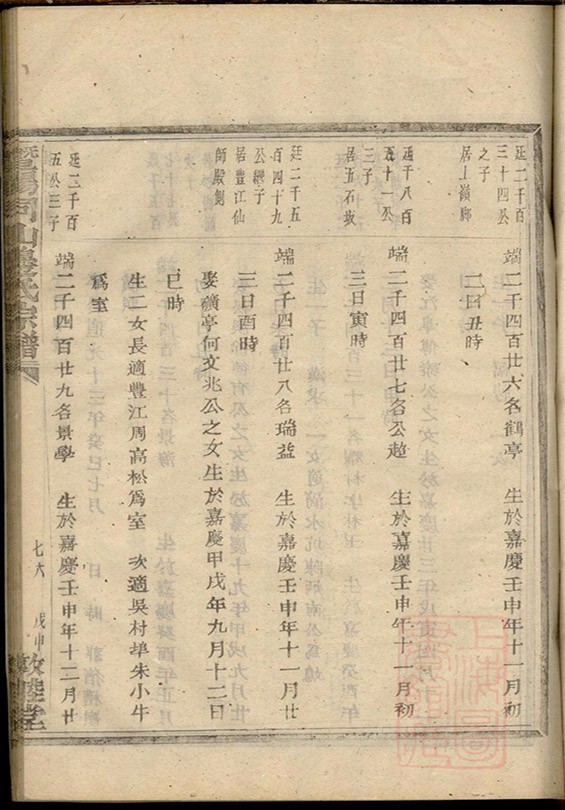 廷二千百
三十四公
之子
居上嶺腳
端二千四百廿六名鶴亭　生於嘉慶壬申年十一月初
二日丑時
廷千八百
五十一公
三子
居五石坂
端二千四百廿七名公超　生於嘉慶壬申年十一月初
三日寅時
廷二千五
百四十九
公繼子
居豐江仙
師殿側
端二千四百廿八名瑞益　生於嘉慶壬申年十一月廿
三日酉時
娶礦亭何文兆公之女生於嘉慶甲戌年九月十二日
巳時
生二女長適豐江周高松為室　次適吳村埠朱小牛
為室
廷二千百
五公三子
端二千四百廿九名景學　生於嘉慶壬申年十二月廿
暨陽同山邊氏宗譜
七六
戊申
敦睦堂